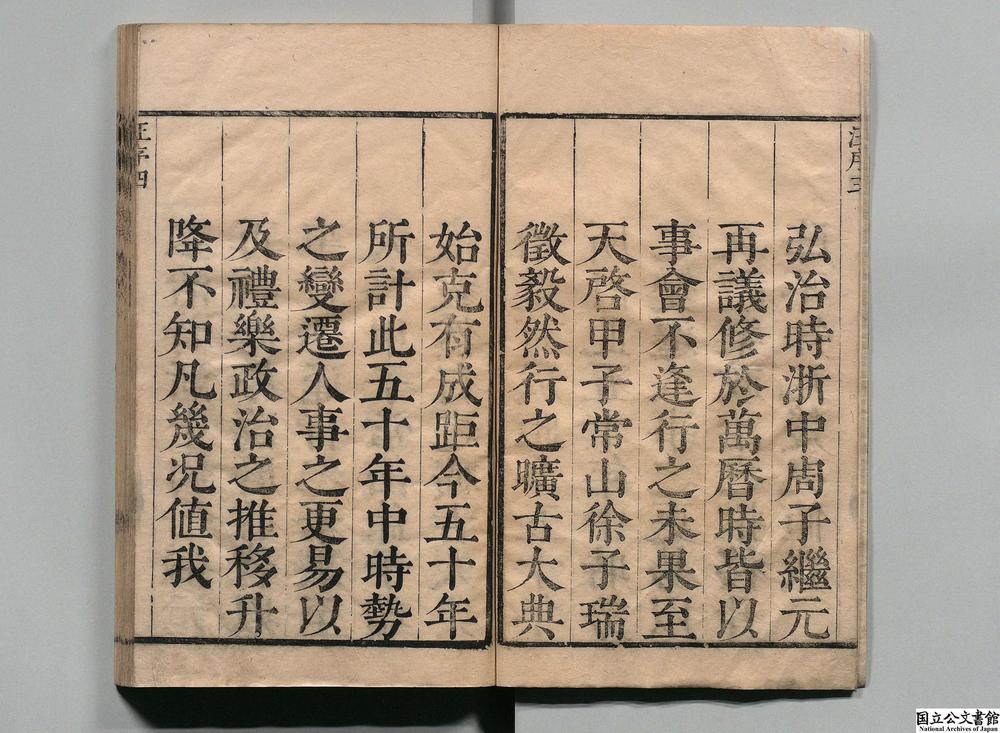 汪序三
弘治時浙中周子繼元
再議修於萬曆時皆以
事會不逢行之未果至
天啓甲子常山徐子瑞
徵毅然行之曠古大典
始克有成距今五十年
所計此五十年中時勢
之變遷人事之更易以
及禮樂政治之推移升
降不知凡幾况値我
汪序四
国立公文書館
National Archives of Japan